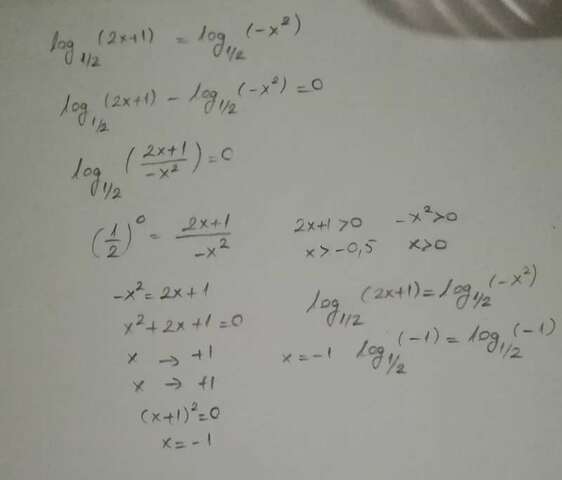 log₁/₂(2x+1) = log₁/₂(-x²)
log₁/₂(2x+1) - log₁/₂(-x²) = 0
log₁/₂((2x+1)/(-x²)) = 0
(1/2)⁰ = (2x+1)/(-x²)
-x² = 2x+1
x²+2x+1=0
x → +1
x → +1
(x+1)²=0
x=-1
2x+1>0 -x²>0
x>-0,5 x>0
log₁/₂(2x+1) = log₁/₂(-x²)
x=-1 log₁/₂(-1) = log₁/₂(-1)